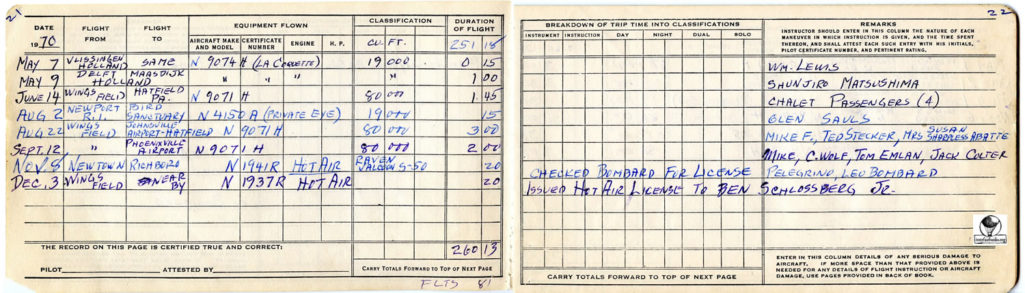 21
DATE
1970
FLIGHT FROM
FLIGHT TO
EQUIPMENT FLOWN
AIRCRAFT MAKE AND MODEL
CERTIFICATE NUMBER
ENGINE
H. P.
CLASSIFICATION
CU. FT.
DURATION OF FLIGHT
251 18
MAY 7 VLISSINGEN HOLLAND SAME N 9074 H (LA COQUETTE) 19 000 0 15
MAY 9 DELFT MAASDIJK HOLLAND " " " " 1 00
JUNE 14 WINGS FIELD HATFIELD PA. N 9071 H 80 000 1 45
AUG 2 NEWPORT R.I. BIRD SANCTUARY N 4150 A (PRIVATE EYE) 19 000 15
AUG 22 WINGS FIELD JOHNSVILLE AIRPORT-HATFIELD N 9071 H 80 000 3 00
SEPT. 12, " PHOENIXVILLE AIRPORT N 9071 H 80 000 2 00
NOV. 8 NEWTOWN RICHBORO N 1941R HOT AIR RAVEN S-50 20
DEC. 3 WINGS FIELD NEAR BY N 1937R HOT AIR 20
THE RECORD ON THIS PAGE IS CERTIFIED TRUE AND CORRECT:
260 13
PILOT ATTESTED BY
CARRY TOTALS FORWARD TO TOP OF NEXT PAGE
FLTS 81
22
BREAKDOWN OF TRIP TIME INTO CLASSIFICATIONS
INSTRUMENT
INSTRUCTION
DAY
NIGHT
DUAL
SOLO
REMARKS
INSTRUCTOR SHOULD ENTER IN THIS COLUMN THE NATURE OF EACH
MANEUVER IN WHICH INSTRUCTION IS GIVEN, AND THE TIME SPENT
THEREON, AND SHALL ATTEST EACH SUCH ENTRY WITH HIS INITIALS,
PILOT CERTIFICATE NUMBER, AND PERTINENT RATING.
WM. LEWIS
SHUNJIRO MATSUSHIMA
CHALET PASSENGERS (4)
GLEN SAULS
MIKE F., TED STECKER, MRS SUSAN SHARPLESS ABATTE
MIKE, C. WOLF, TOM EMLAN, JACK COLTER
CHECKED BOMBARD FOR LICENSE PELEGRINO, LEO BOMBARD
ISSUED HOT AIR LICENSE TO BEN SCHLOSSBERG JR.
CARRY TOTALS FORWARD TO TOP OF NEXT PAGE
ENTER IN THIS COLUMN DETAILS OF ANY SERIOUS DAMAGE TO
AIRCRAFT. IF MORE SPACE THAN THAT PROVIDED ABOVE IS
NEEDED FOR ANY DETAILS OF FLIGHT INSTRUCTION OR AIRCRAFT
DAMAGE, USE PAGES PROVIDED IN BACK OF BOOK.